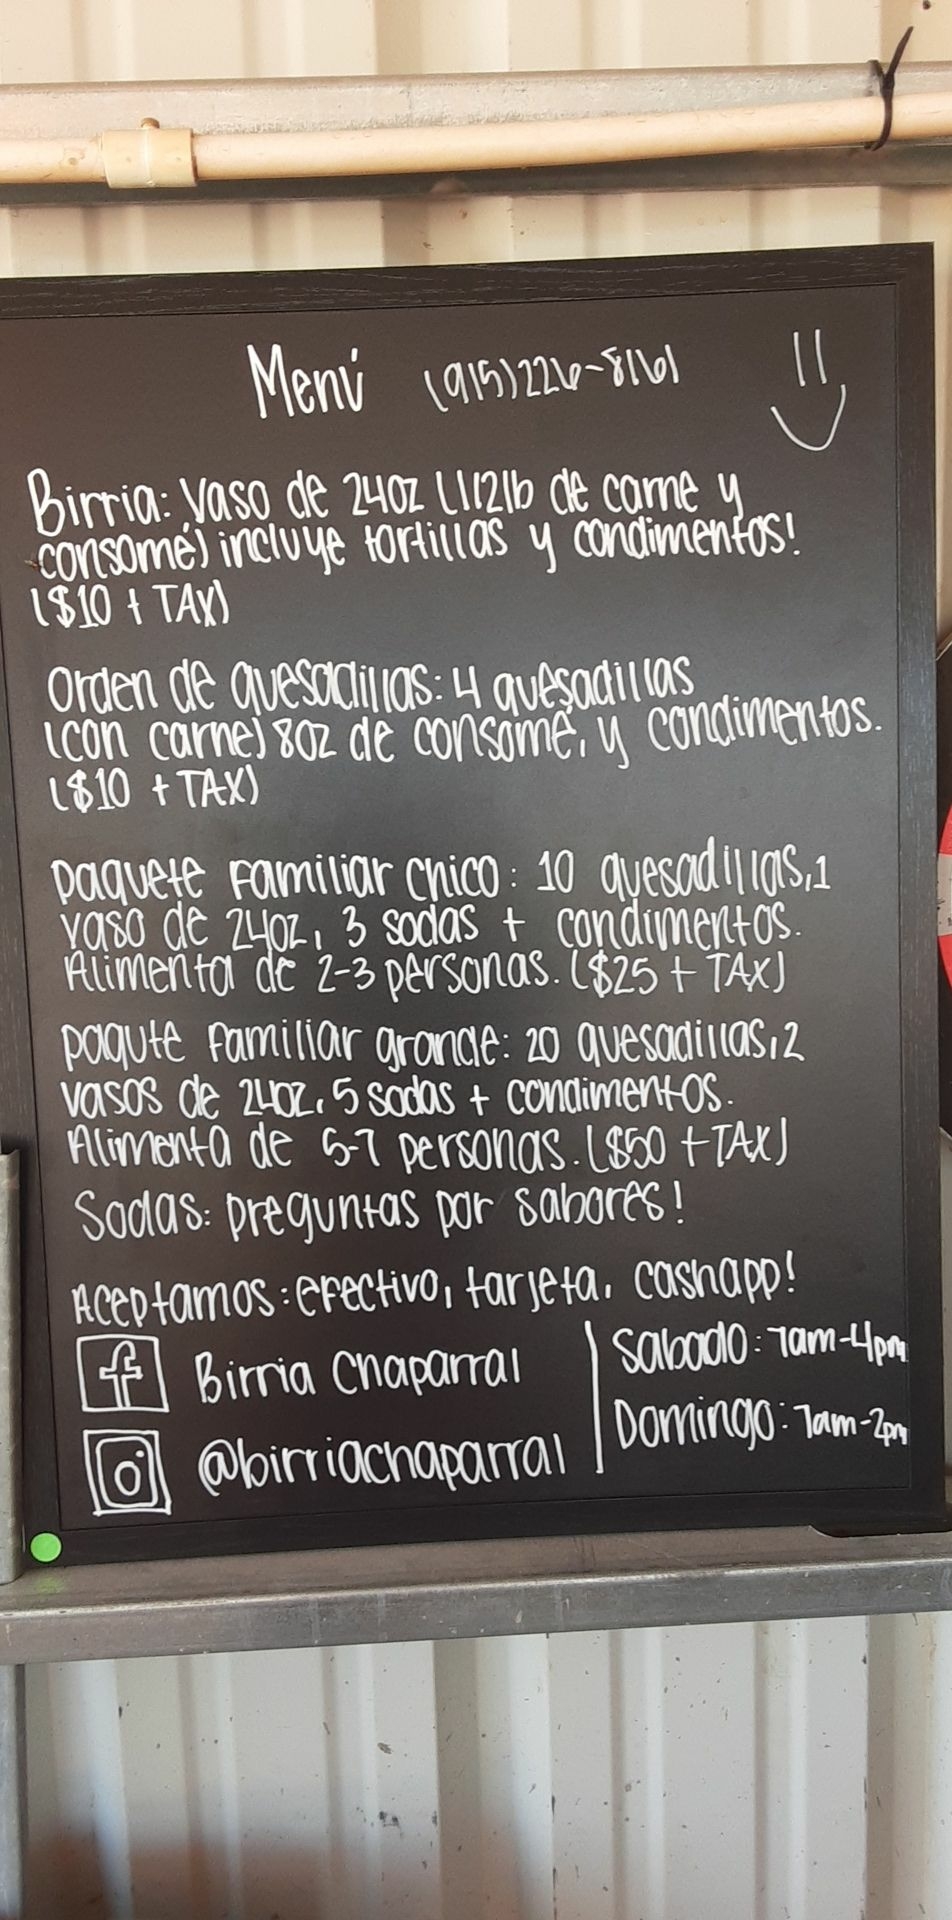 Menú (915)226-8161
Birria: Vaso de 24oz (1/2lb de carne y
consomé) incluye tortillas y condimentos!
($10 + TAX)
Orden de quesadillas: 4 quesadillas
(con carne) 8oz de consomé, y condimentos.
($10 + TAX)
Paquete Familiar Chico: 10 quesadillas, 1
vaso de 24oz, 3 sodas + condimentos.
Alimenta de 2-3 personas. ($25 + TAX)
Paqute Familiar grande: 20 quesadillas, 2
vasos de 24oz, 5 sodas + condimentos.
Alimenta de 5-7 personas. ($50 + TAX)
Sodas: preguntas por sabores!
Aceptamos: efectivo, tarjeta, cashapp!
f Birria Chaparral
@birriachaparral
Sabado: 7am-4pm
Domingo: 7am-2pm